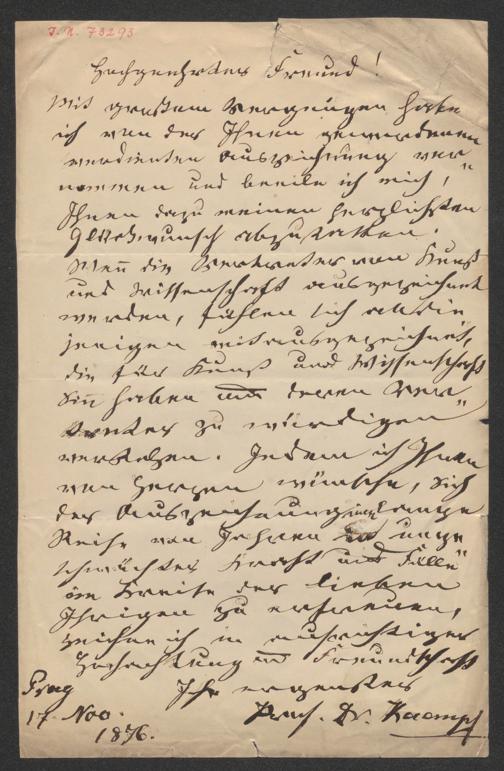 I. N. 73293
Hochgeehrter Freund!
Mit großem Vergnügen habe
ich von der Ihnen gewordenen
verdienten Auszeichnung ver„
nommen und beeile ich mich,
Ihnen dazu meinen herzlichsten
Glückwunsch abzustatten.
Wenn die Vertreter von Kunst
und Wissenschaft ausgezeichnet
werden, fühlen sich alle die
jenigen mitausgezeichnet,
die für Kunst und Wissenschaft
Sinn haben und deren Ver„
treter zu würdigen
verstehen. Indem ich Ihnen
von Herzen wünsche, sich
der Auszeichnung lange
Reihe von Jahren in unge„
schwächter Kraft und Fülle
im Kreise der lieben
Ihrigen zu erfreuen,
zeichne ich in aufrichtiger
Hochachtung und Freundschaft
Ihr ergebenster
Prag
17. Nov. Prof. Dr. Kaempf
1876.